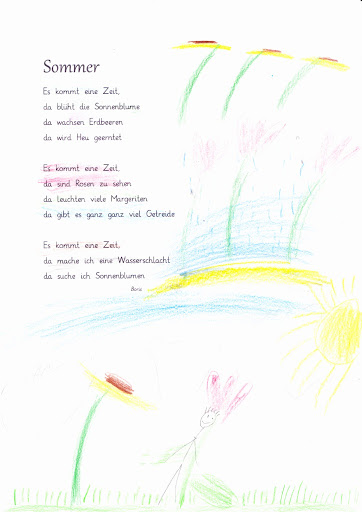 Sommer
Es kommt eine Zeit,
da blüht die Sonnenblume
da wachsen Erdbeeren
da wird Heu geerntet
Es kommt eine Zeit,
da sind Rosen zu sehen
da leuchten viele Margeriten
da gibt es ganz ganz viel Getreide
Es kommt eine Zeit,
da mache ich eine Wasserschlacht
da suche ich Sonnenblumen